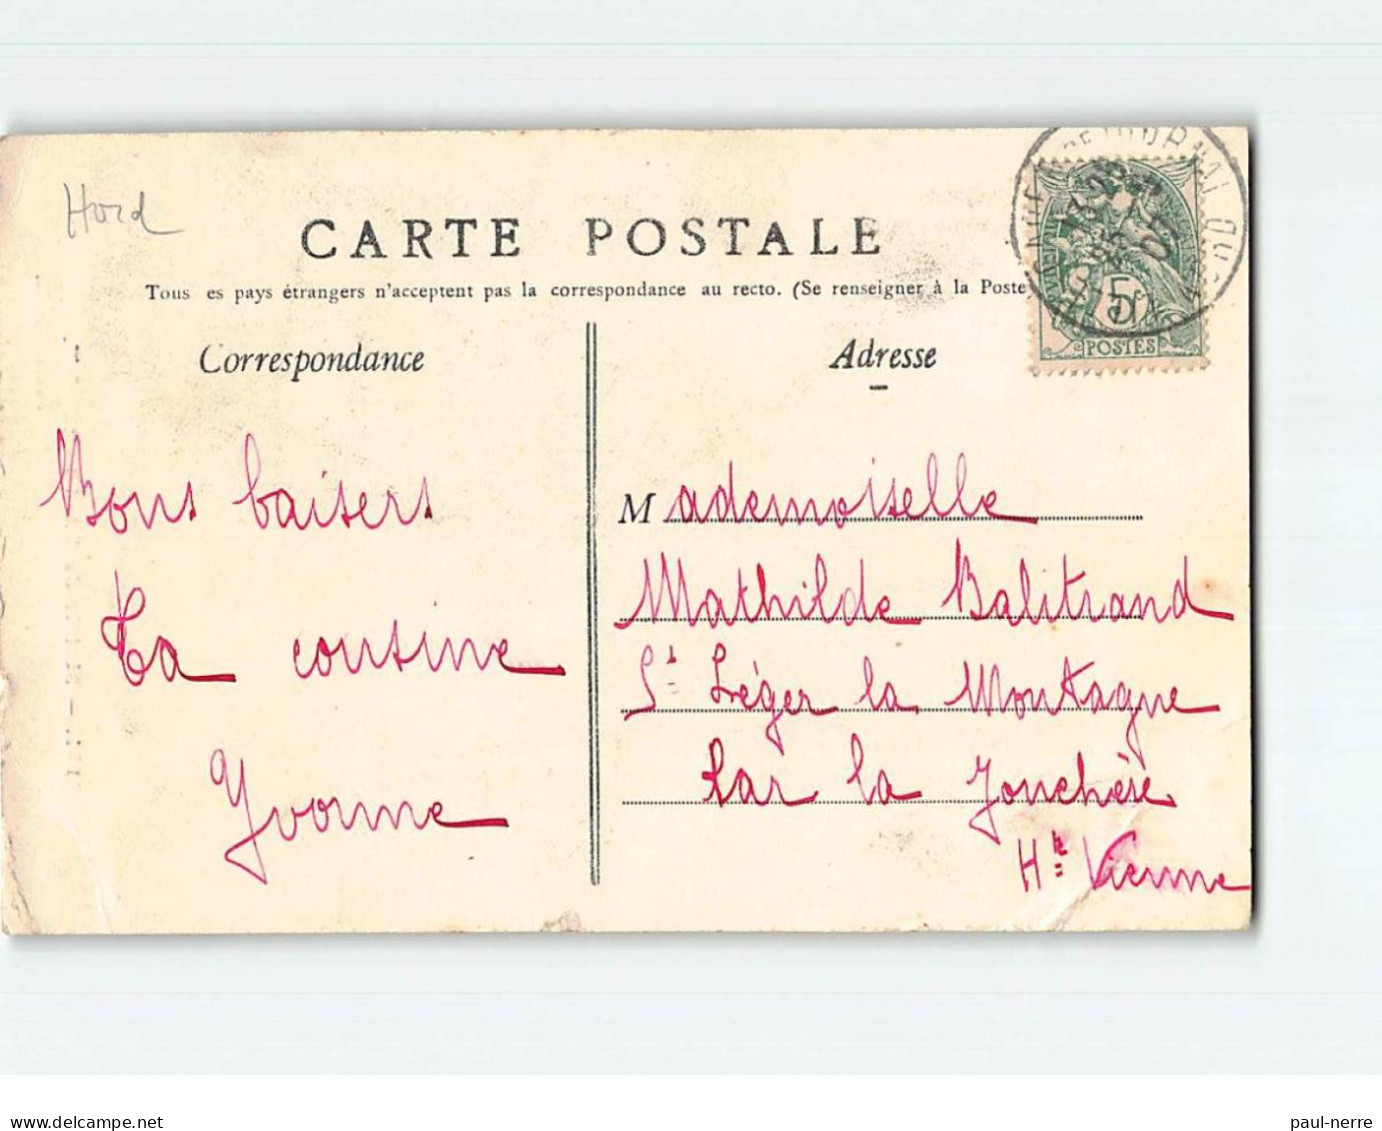 Hord
CARTE POSTALE
Tous es pays étrangers n'acceptent pas la correspondance au recto. (Se renseigner à la Poste
Correspondance
Adresse
5
POSTES
Bons baisers
Ta cousine
Yvonne
Mademoiselle
Mathilde Balitrand
St Léger la Montagne
par la Jonchère
Hte Vienne
delcampe.net
paul-nerre